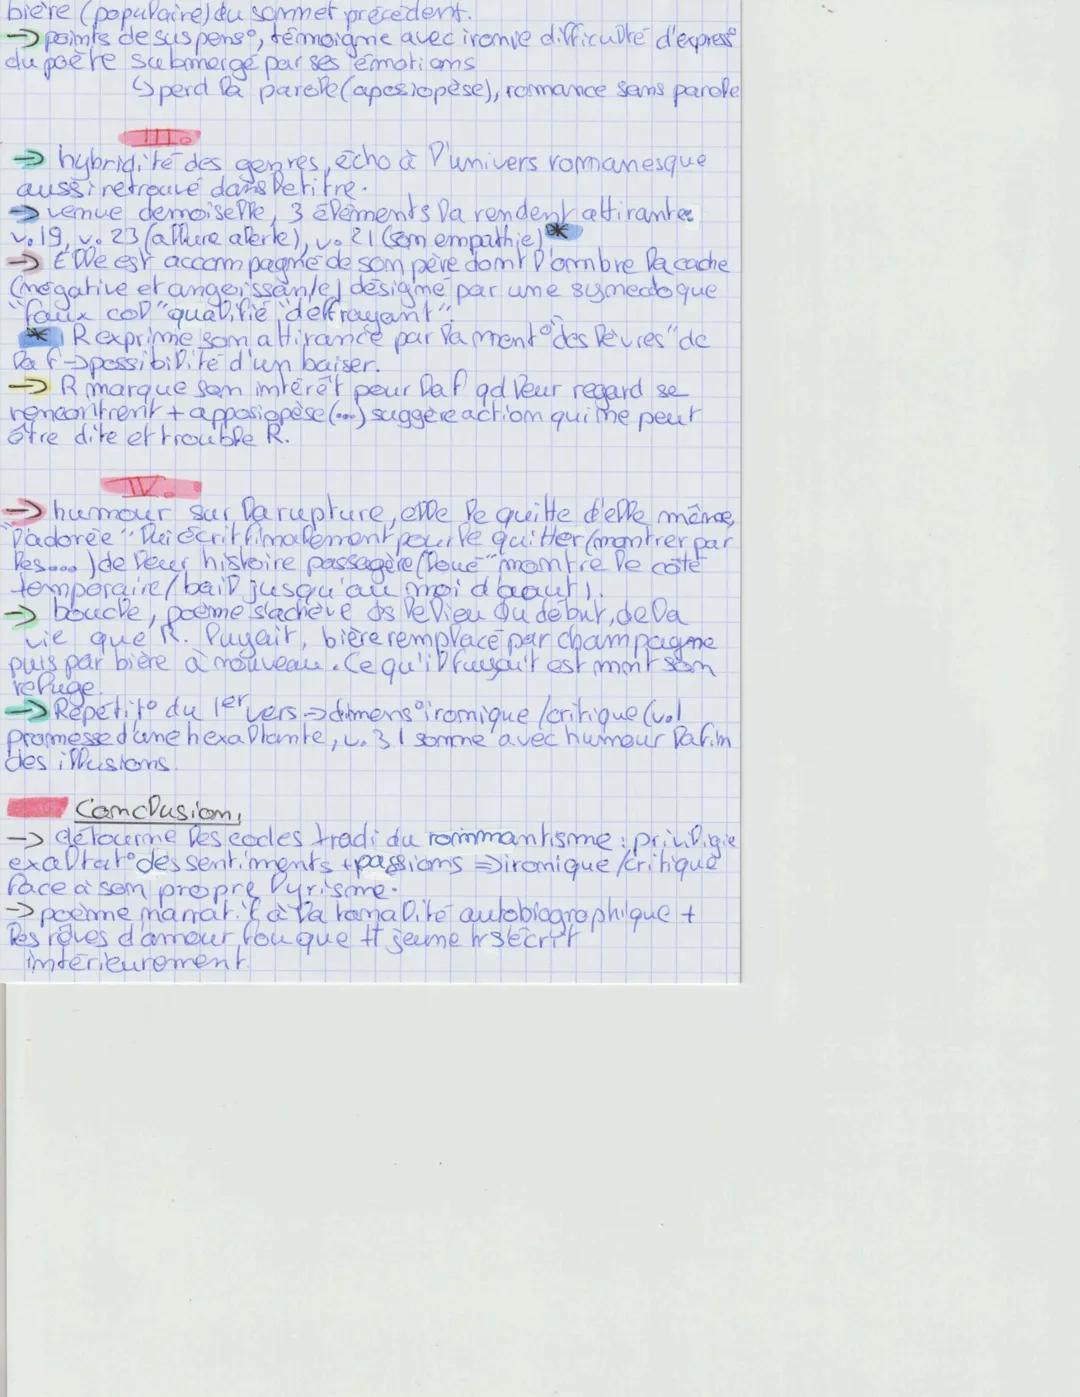 bière (populaire) du sonnet précédent.
→ points de suspens°, témoigne avec ironie difficulté d'express°
du poète submergé par ses émotions
↳ perd la parole (aposiopèse), romance sans parole
III.
→ hybridité des genres, écho à l'univers romanesque
aussi retrouvé dans le titre.
→ venue demoiselle, 3 éléments la rendent attirante
v. 19, v. 23 (allure alerte), v. 21 (son empathie) *
→ Elle est accompagné de son père dont l'ombre la cache
(négative et angoissante) désigné par une synecdoque
"faux col" qualifié "d'effrayant".
* R exprime son attirance par la ment° "des lèvres" de
la f → possibilité d'un baiser.
→ R marque son intérêt pour la f qd leur regard se
rencontrent + apposiopèse (...) suggère action qui ne peut
être dite et trouble R.
IV.
→ humour sur la rupture, elle le quitte d'elle même,
"l'adorée" lui écrit finalement pour le quitter (montrer par
les ... ) de leur histoire passagère (loué "montre le côté
temporaire / bail jusqu'au moi d'aout).
→ boucle, poème s'achève ds le lieu du début, de la
vie que R. fuyait, bière remplacé par champagne
puis par bière à nouveau. Ce qu'il fuyait est mnt son
refuge.
→ Répétit° du 1er vers → dimens° ironique / critique (v. 1
promesse d'une hexaltante, v. 31 sonne avec humour la fin
des illusions.
Conclusion,
→ détourne les codes tradi du rommantisme : priviligie
exaltat° des sentiments + passions ⇒ ironique / critique
face à son propre lyrisme.
→ poème narratif à la tonalité autobiographique +
les rêves d'amour fou que tt jeune hr s'écrit
intérieurement.